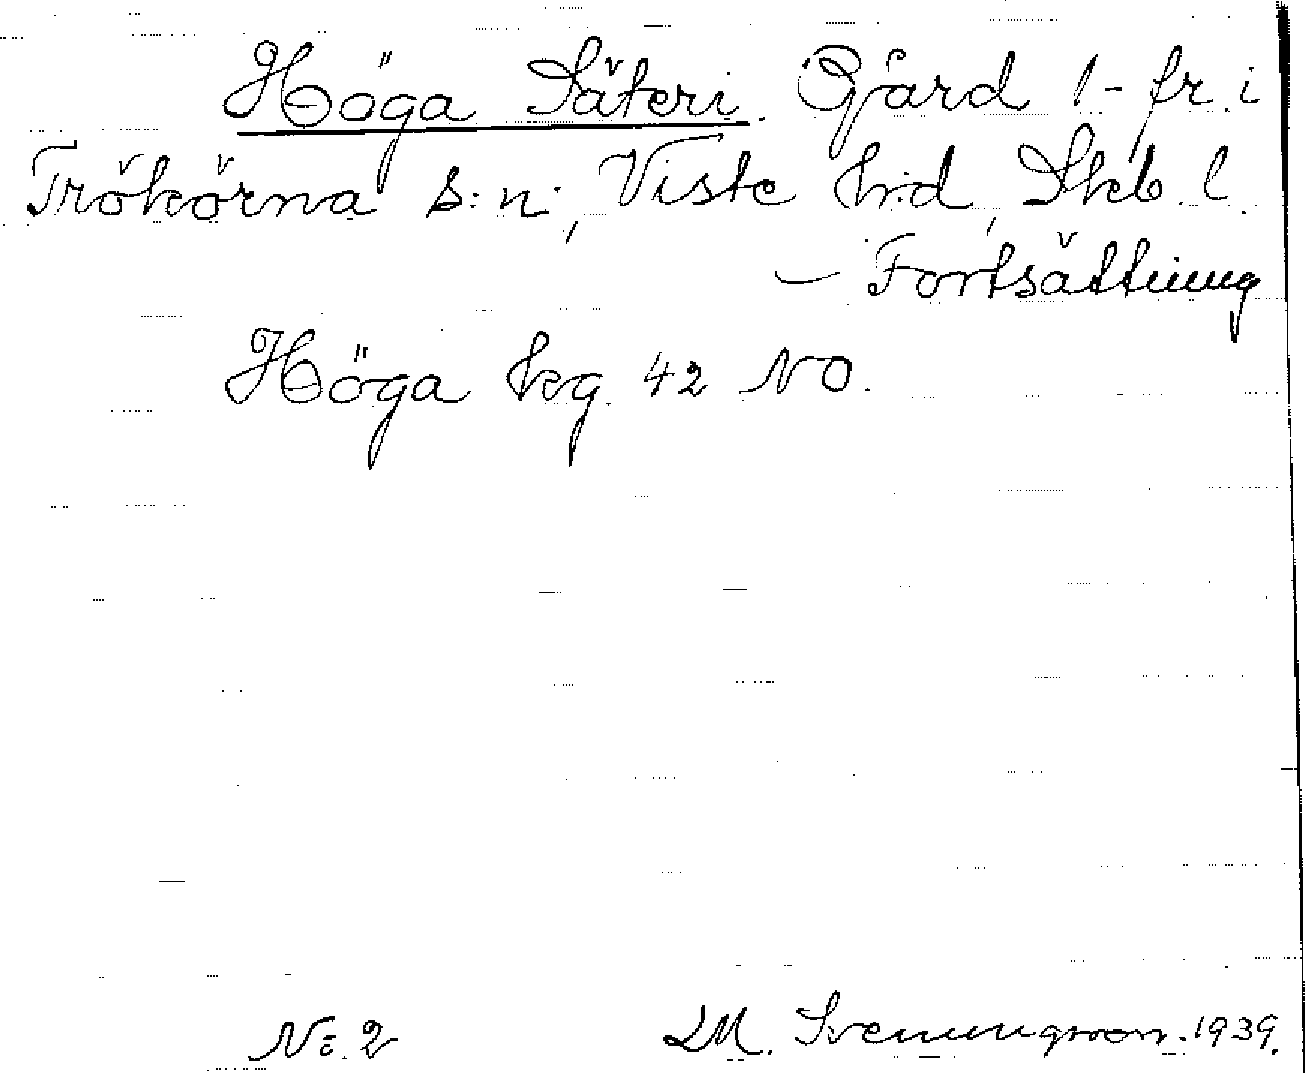 Höga Säteri. Gård 1-fr. i
Trökörna s:n, Viste h:d, Skb. l.
– Fortsättning
Höga kg. 42 NO.
No. 2
D.M. Svenungsson. 1939.